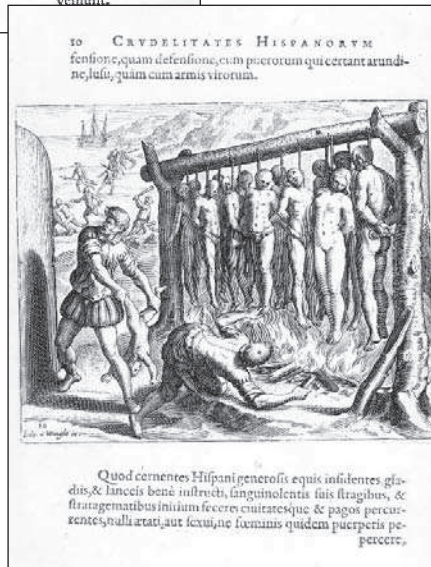 10 CRVDELITATES HISPANORVM
fensione, quam defensione, cum puerorum qui certant arundi-
ne, lusu, quàm cum armis virorum.
Quod cernentes Hispani generosis equis insidentes gla-
diis, & lanceis benè instructi, sanguinolentis suis stragibus, &
stratagematibus initium fecere: ciuitatesque & pagos percur-
rentes, nulli ætati, aut sexui, ne fœminis quidem puerperis pe-
percere,